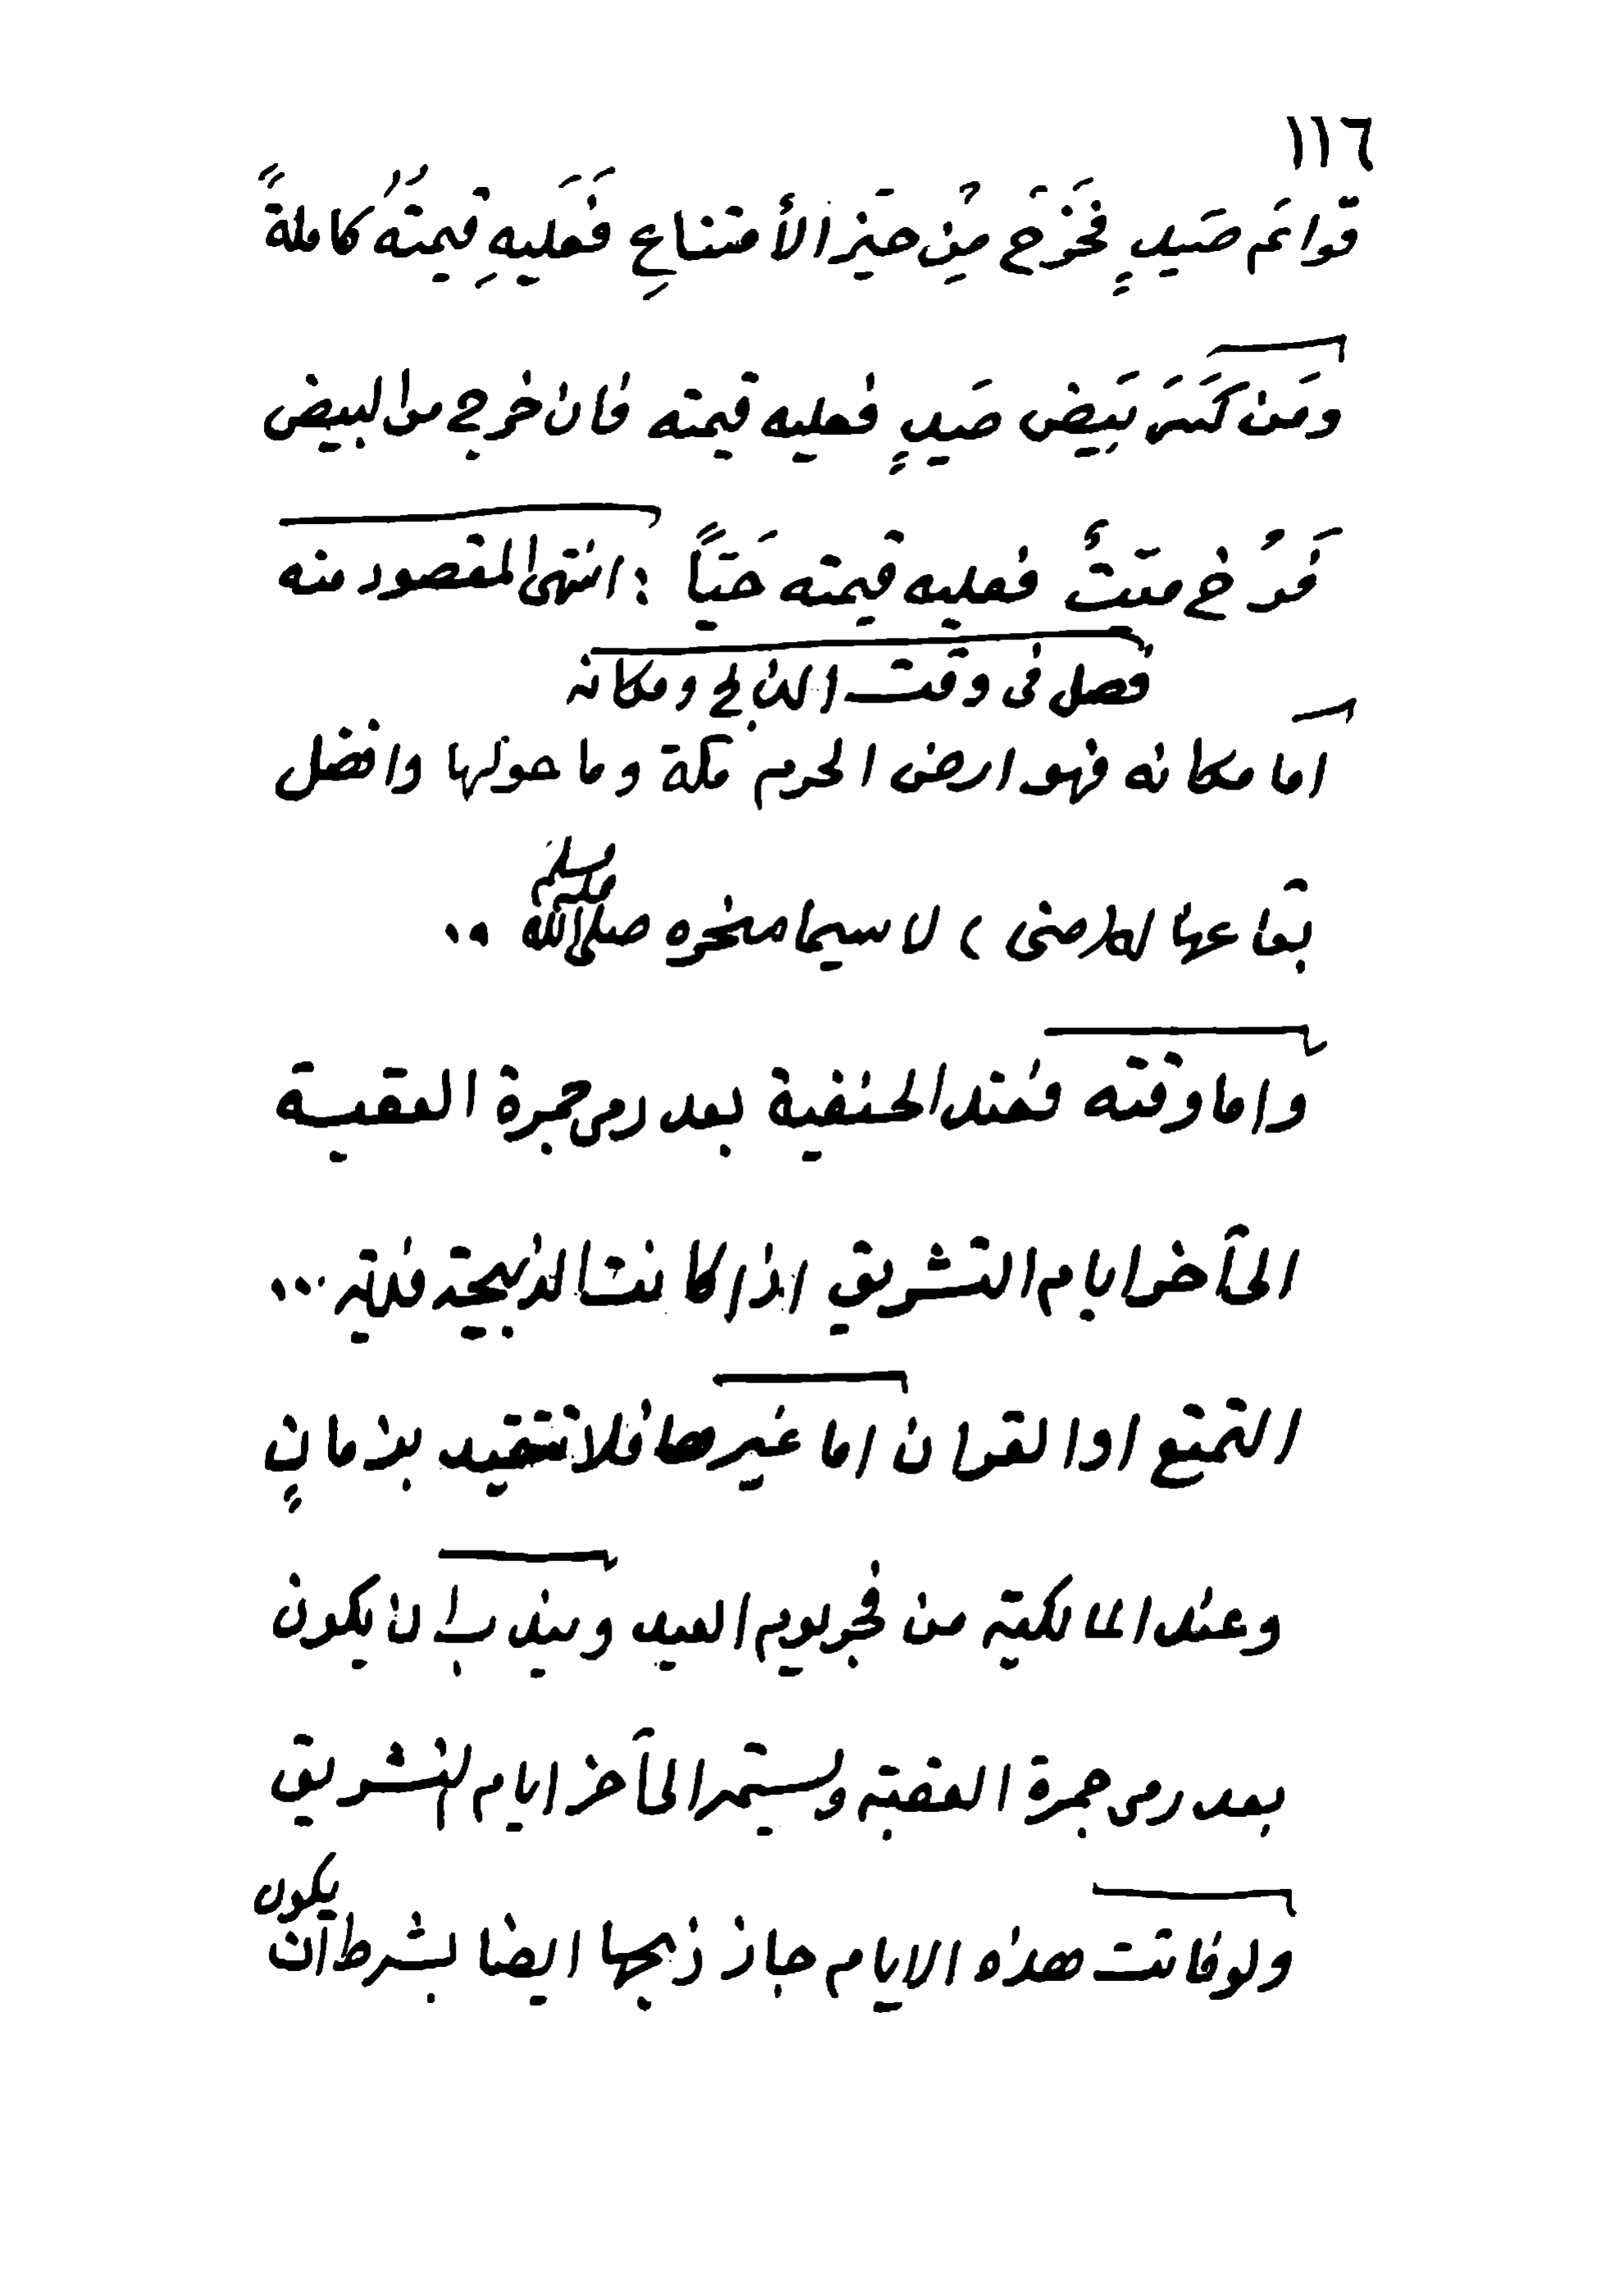 ١١٦
قوائم صَيدٍ فَخَرَجَ مِن حَيّز الأمتناعِ فَعَليهِ قِيمتُهُ كاملةً
ومَن كَسَرَ بَيضَ صَيدٍ فعليه قيمته فان خرج من البيض
فَرخٌ ميّتٌ فعليه قيمته حَيّاً : انتهى المقصود منه
فصل فى وقت الذبح ومكانه
أما مكانه فهو ارض الحرم مكة وما حولها وافضل
بقاعها منى ) لا سيما منحره صلى الله عليه وسلم ..
واما وقته فعند الحنفية بعد رمى جمرة العقبة
الى آخر ايام التشريق اذا كانت الذبيحة فدية ...
التمتع او القران اما غيرها فلا تتقيد بزمانٍ
وعند المالكية من فجر يوم العيد ويندب ان يكون
بعد رمى جمرة العقبة ويستمر الى آخر ايام التشريق
ولو فاتت هذه الايام جاز ذبحها ايضا بشرط أن يكون